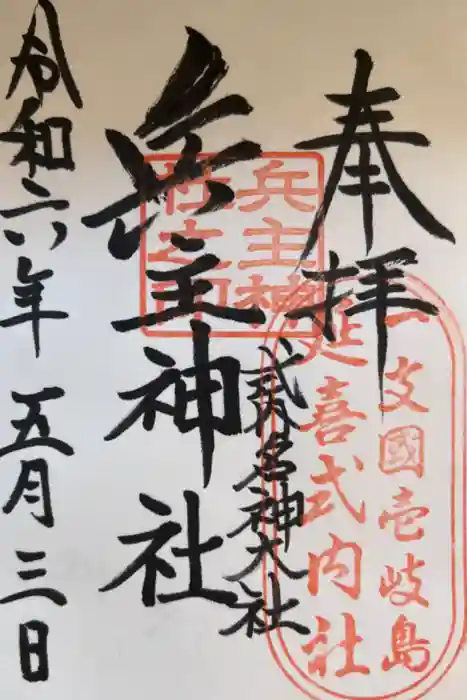 奉拝
一支國壱岐島
延喜式内社
式内名神大社
兵主神
社之印
兵主神社
令和六年 五月三日